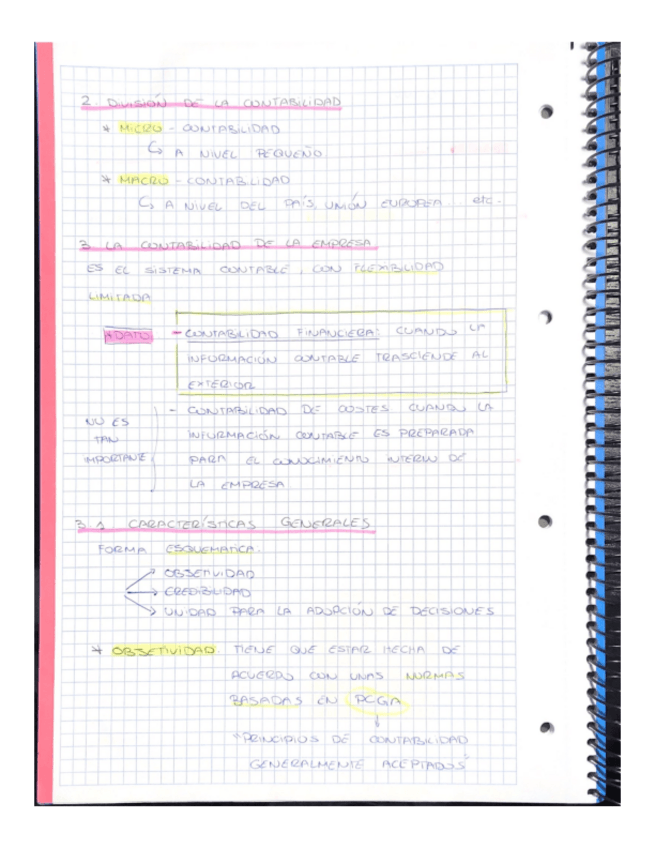 2. DIVISIÓN DE LA CONTABILIDAD
* MICRO - CONTABILIDAD
↳ A NIVEL PEQUEÑO
* MACRO - CONTABILIDAD
↳ A NIVEL DEL PAÍS, UNIÓN EUROPEA. etc.
3 LA CONTABILIDAD DE LA EMPRESA
ES EL SISTEMA CONTABLE, CON FLEXIBILIDAD
LIMITADA
* DATO - CONTABILIDAD FINANCIERA: CUANDO LA
INFORMACIÓN CONTABLE TRASCIENDE AL
EXTERIOR
- CONTABILIDAD DE COSTES CUANDO LA
INFORMACIÓN CONTABLE ES PREPARADA
PARA EL CONOCIMIENTO INTERNO DE
LA EMPRESA
NO ES
TAN
IMPORTANTE
3.1 CARACTERÍSTICAS GENERALES
FORMA ESQUEMATICA.
→ OBJETIVIDAD
→ CREDIBILIDAD
→ UNIDAD PARA LA ADOPCIÓN DE DECISIONES
* OBJETIVIDAD TIENE QUE ESTAR HECHA DE
ACUERDO CON UNAS NORMAS
BASADAS EN PCGA
↓
"PRINCIPIOS DE CONTABILIDAD
GENERALMENTE ACEPTADOS"